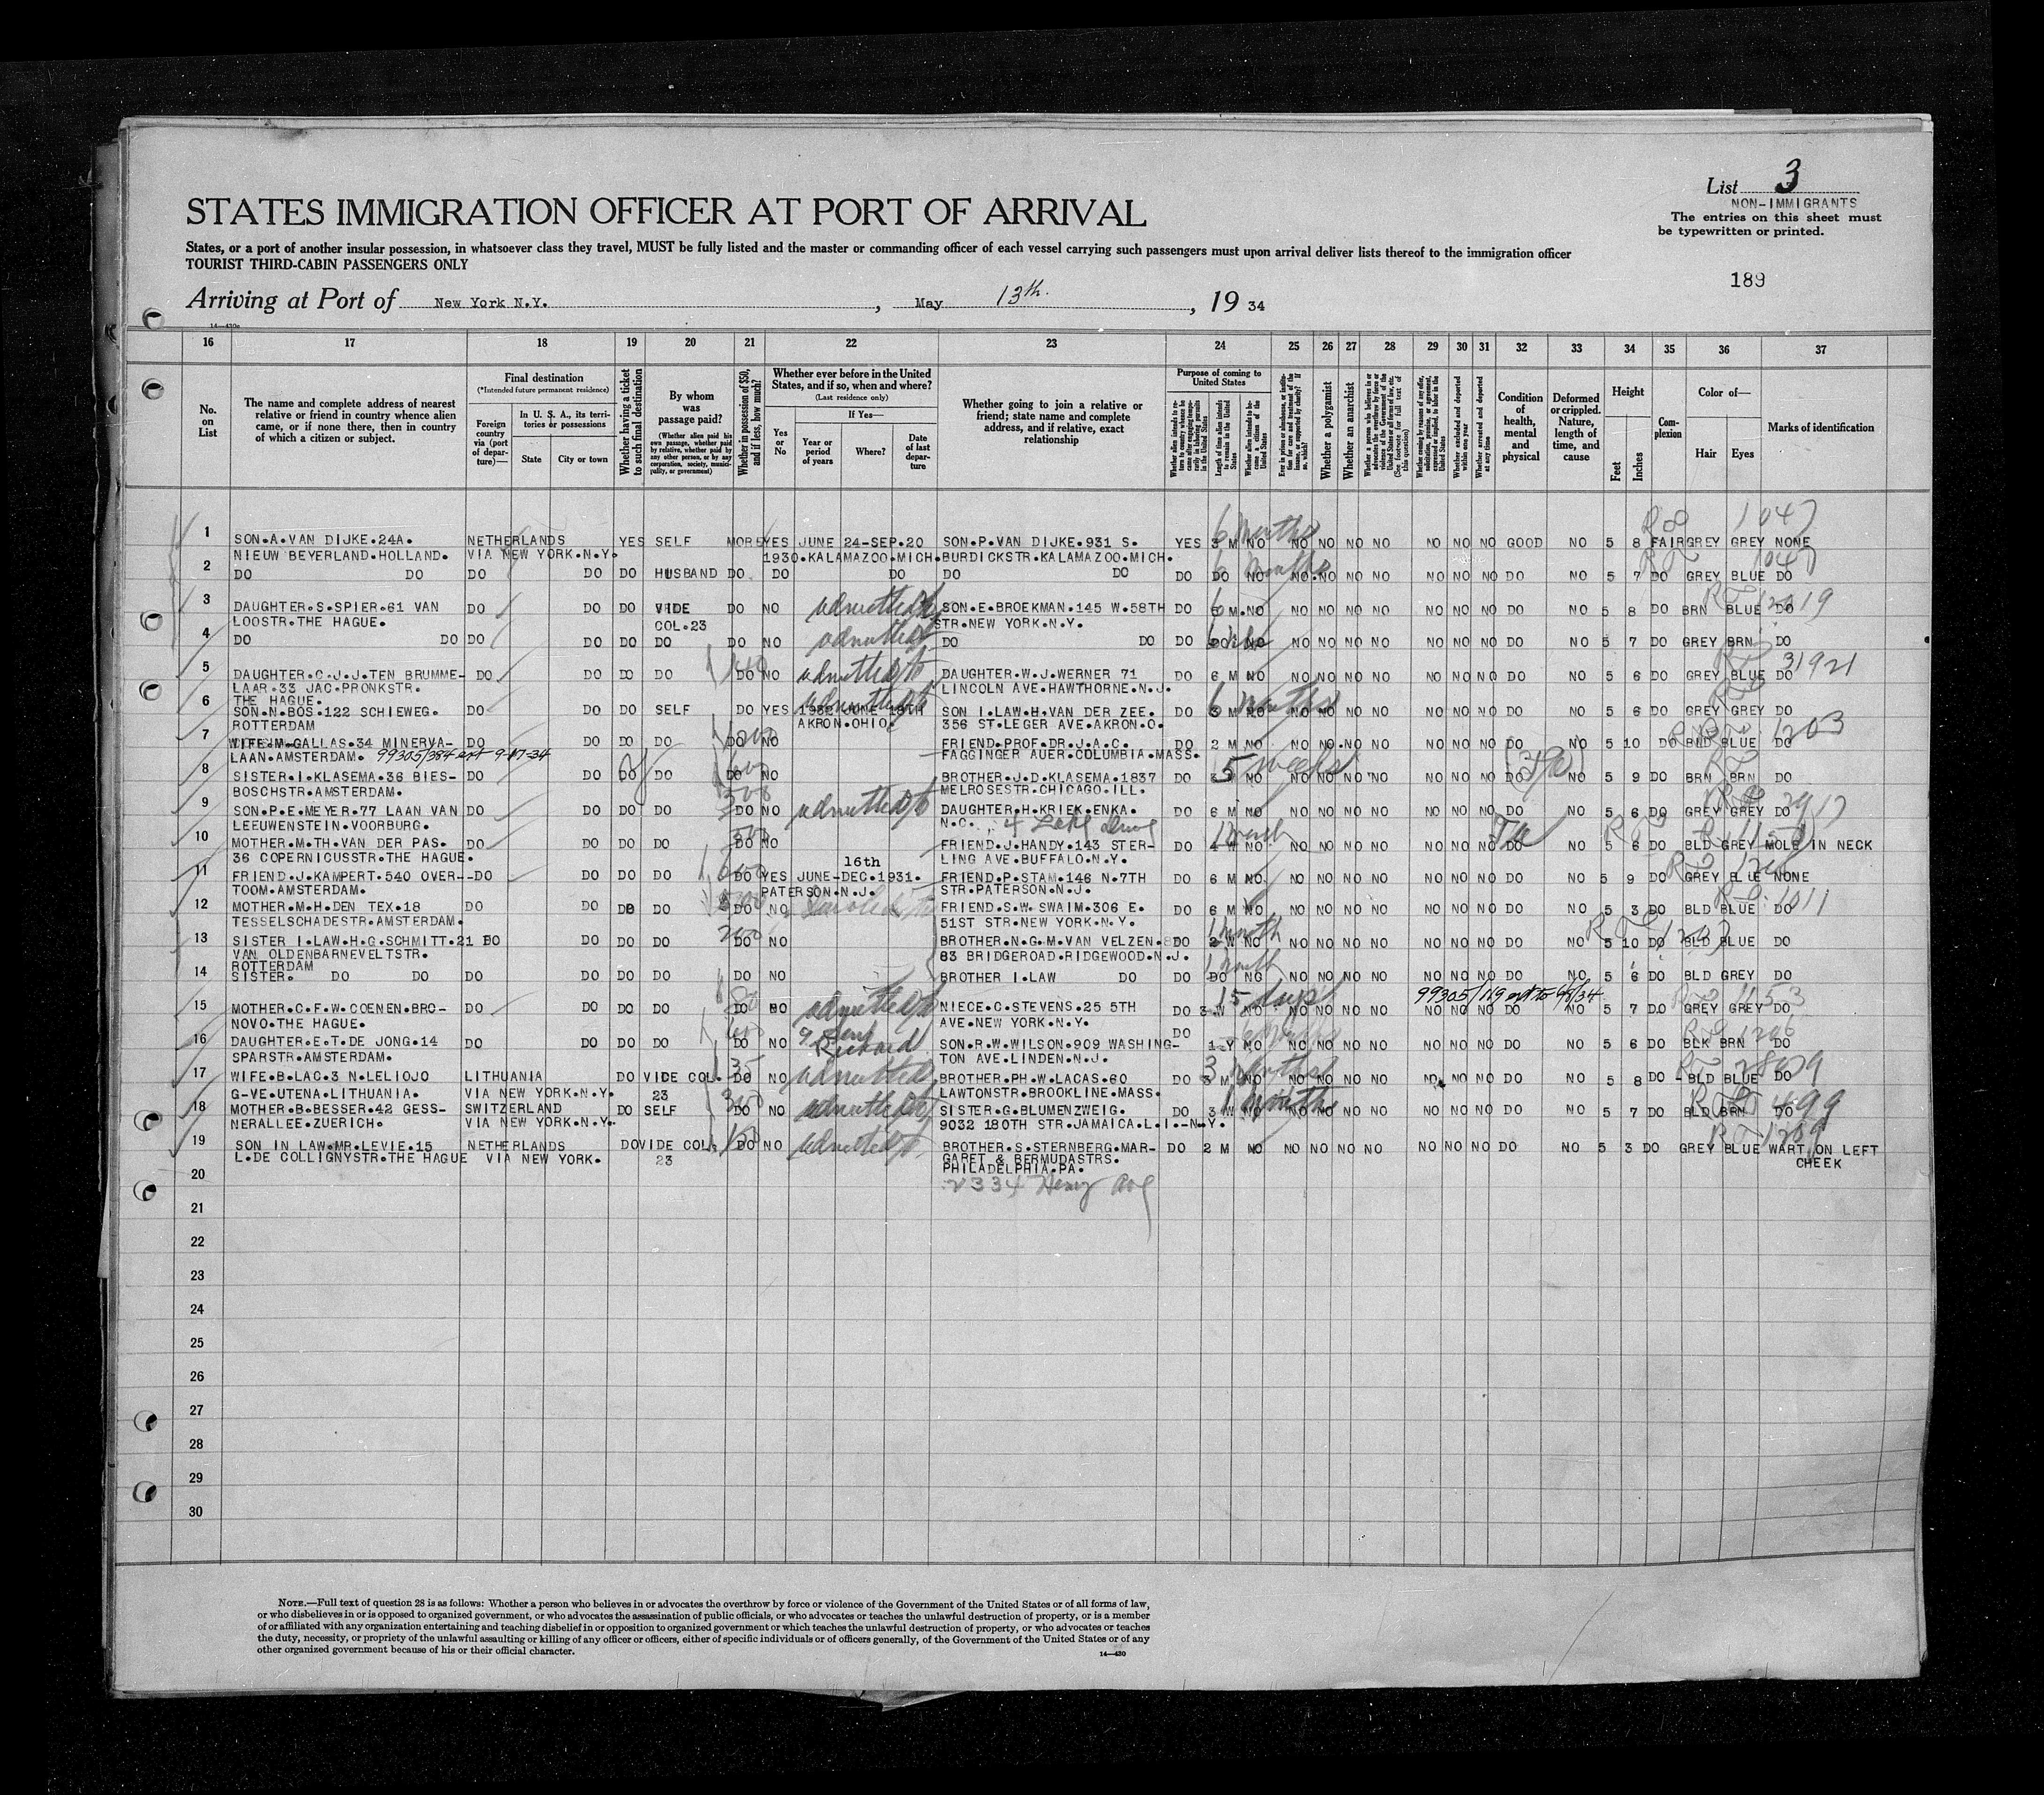 List 3
NON-IMMIGRANTS
The entries on this sheet must
be typewritten or printed.
STATES IMMIGRATION OFFICER AT PORT OF ARRIVAL
States, or a port of another insular possession, in whatsoever class they travel, MUST be fully listed and the master or commanding officer of each vessel carrying such passengers must upon arrival deliver lists thereof to the immigration officer
TOURIST THIRD-CABIN PASSENGERS ONLY
189
Arriving at Port of New York N.Y. , May 13th. , 19 34
14—430c
16 17 18 19 20 21 22 23 24 25 26 27 28 29 30 31 32 33 34 35 36 37
No. on List
The name and complete address of nearest relative or friend in country whence alien came, or if none there, then in country of which a citizen or subject.
Final destination
(*Intended future permanent residence)
Foreign country via (port of departure)—
In U. S. A., its territories or possessions
State
City or town
Whether having a ticket to such final destination
By whom was passage paid?
(Whether alien paid his own passage, whether paid by relative, whether paid by any other person, or by any corporation, society, municipality, or government)
Whether in possession of $50, and if less, how much?
Whether ever before in the United States, and if so, when and where?
(Last residence only)
Yes or No
If Yes—
Year or period of years
Where?
Date of last departure
Whether going to join a relative or friend; state name and complete address, and if relative, exact relationship
Purpose of coming to United States
Length of time alien intends to remain in the United States
Whether alien intends to become a citizen of the United States
Whether a polygamist
Whether an anarchist
Whether arrested and deported at any time
Condition of health, mental and physical
Deformed or crippled. Nature, length of time, and cause
Height
Feet
Inches
Complexion
Color of—
Hair
Eyes
Marks of identification
1 SON.A.VAN DIJKE.24A. NETHERLANDS YES SELF MORE YES JUNE 24-SEP.20 SON.P.VAN DIJKE.931 S. YES 3 M NO NO NO NO NO NO NO NO GOOD NO 5 8 FAIR GREY GREY NONE
NIEUW BEYERLAND.HOLLAND. VIA NEW YORK.N.Y. 1930.KALAMAZOO.MICH. BURDICKSTR.KALAMAZOO.MICH.
6 months
1047
2 DO DO DO DO DO HUSBAND DO DO DO DO DO DO DO NO NO NO NO NO NO NO NO DO NO 5 7 DO GREY BLUE DO
6 months
1047
3 DAUGHTER.S.SPIER.61 VAN DO DO DO VIDE DO NO SON.E.BROEKMAN.145 W.58TH DO M.NO NO NO NO NO NO NO NO DO NO 5 8 DO BRN BLUE DO
LOOSTR.THE HAGUE. COL.23 STR.NEW YORK.N.Y.
4 DO DO DO DO DO DO DO NO DO DO DO DO NO NO NO NO NO NO NO NO DO NO 5 7 DO GREY BRN DO
5 DAUGHTER.C.J.J.TEN BRUMME- DO DO DO DO DO NO DAUGHTER.W.J.WERNER 71 DO 6 M NO NO NO NO NO NO NO NO DO NO 5 6 DO GREY BLUE DO
LAAR.33 JAC.PRONKSTR. LINCOLN AVE.HAWTHORNE.N.J.
THE HAGUE.
31921
6 SON.N.BOS.122 SCHIEWEG. DO DO DO SELF DO YES SON I.LAW.H.VAN DER ZEE. DO 3 M NO NO NO NO NO NO NO NO DO NO 5 6 DO GREY GREY DO
ROTTERDAM AKRON.OHIO 356 ST.LEGER AVE.AKRON.O.
6 months
7 WIFE.M.GALLAS.34 MINERVA- DO DO DO DO DO NO FRIEND.PROF.DR.J.A.C. DO 2 M NO NO NO NO NO NO NO NO DO NO 5 10 DO BLD BLUE DO
LAAN.AMSTERDAM. 99305/384 ext 9-17-34 FAGGINGER AUER.COLUMBIA.MASS.
1203
8 SISTER.I.KLASEMA.36 BIES- DO DO DO DO DO NO BROTHER.J.D.KLASEMA.1837 DO NO NO NO NO NO NO NO NO DO NO 5 9 DO BRN BRN DO
BOSCHSTR.AMSTERDAM. MELROSESTR.CHICAGO.ILL.
5 weeks
9 SON.P.E.MEYER.77 LAAN VAN DO DO DO DO DO NO DAUGHTER.H.KRIEK.ENKA. DO 6 M NO NO NO NO NO NO NO NO DO NO 5 6 DO GREY GREY DO
LEEUWENSTEIN.VOORBURG. N.C. 4 Lake Drive
10 MOTHER.M.TH.VAN DER PAS. DO DO DO DO DO NO FRIEND.J.HANDY.143 STER- DO W NO NO NO NO NO NO NO NO DO NO 5 6 DO BLD GREY MOLE IN NECK
36 COPERNICUSSTR.THE HAGUE. LING AVE.BUFFALO.N.Y.
1 month
16th
11 FRIEND.J.KAMPERT.540 OVER- DO DO DO DO DO YES JUNE-DEC.1931. FRIEND.P.STAM.146 N.7TH DO 6 M NO NO NO NO NO NO NO NO DO NO 5 9 DO GREY BLUE NONE
TOOM.AMSTERDAM. PATERSON.N.J. STR.PATERSON.N.J.
12 MOTHER.M.H.DEN TEX.18 DO DO DO DO DO NO FRIEND.S.W.SWAIM.306 E. DO 6 M NO NO NO NO NO NO NO NO DO NO 5 3 DO BLD BLUE DO
TESSELSCHADESTR.AMSTERDAM. 51ST STR.NEW YORK.N.Y.
1011
13 SISTER I.LAW.H.G.SCHMITT.21 DO DO DO DO DO NO BROTHER.N.G.M.VAN VELZEN. DO 2 W NO NO NO NO NO NO NO NO DO NO 5 10 DO BLD BLUE DO
VAN OLDENBARNEVELTSTR. 83 BRIDGEROAD.RIDGEWOOD.N.J.
ROTTERDAM
1 month
14 SISTER. DO DO DO DO DO DO DO NO BROTHER I.LAW DO DO DO NO NO NO NO NO NO NO NO DO NO 5 6 DO BLD GREY DO
1 month
15 MOTHER.C.F.W.COENEN.BRO- DO DO DO DO DO NO NIECE.C.STEVENS.25 5TH DO 3 W NO NO NO NO NO NO NO NO DO NO 5 7 DO GREY GREY DO
NOVO.THE HAGUE. AVE.NEW YORK.N.Y.
15 days
16 DAUGHTER.E.T.DE JONG.14 DO DO DO DO DO NO SON.R.W.WILSON.909 WASHING- DO 1 Y NO NO NO NO NO NO NO NO DO NO 5 6 DO BLK BRN DO
SPARSTR.AMSTERDAM. TON AVE.LINDEN.N.J.
17 WIFE.B.LAC.3 N.LELIOJO LITHUANIA DO VIDE COL. DO NO BROTHER.PH.W.LACAS.60 DO 3 M NO NO NO NO NO NO NO NO DO NO 5 8 DO BLD BLUE DO
G-VE.UTENA.LITHUANIA. VIA NEW YORK.N.Y. 23 LAWTONSTR.BROOKLINE.MASS.
3 months
18 MOTHER.B.BESSER.42 GESS- SWITZERLAND DO SELF DO NO SISTER.G.BLUMENZWEIG. DO 3 W NO NO NO NO NO NO NO NO DO NO 5 7 DO BLD BRN DO
NERALLEE.ZUERICH. VIA NEW YORK.N.Y. 9032 180TH STR.JAMAICA.L.I.-N.Y.
1 month
19 SON IN LAW.MR.LEVIE.15 NETHERLANDS DO VIDE COL. DO NO BROTHER.S.STERNBERG.MAR- DO 2 M NO NO NO NO NO NO NO NO DO NO 5 3 DO GREY BLUE WART ON LEFT
L.DE COLLIGNYSTR.THE HAGUE VIA NEW YORK. 23 GARET & BERMUDASTRS. CHEEK
PHILADELPHIA.PA.
20 2334 Henry Ave
21
22
23
24
25
26
27
28
29
30
NOTE.—Full text of question 28 is as follows: Whether a person who believes in or advocates the overthrow by force or violence of the Government of the United States or of all forms of law,
or who disbelieves in or is opposed to organized government, or who advocates the assassination of public officials, or who advocates or teaches the unlawful destruction of property, or is a member
of or affiliated with any organization entertaining and teaching disbelief in or opposition to organized government or which teaches the unlawful destruction of property, or who advocates or teaches
the duty, necessity, or propriety of the unlawful assaulting or killing of any officer or officers, either of specific individuals or of officers generally, of the Government of the United States or of any
other organized government because of his or their official character.
14—430